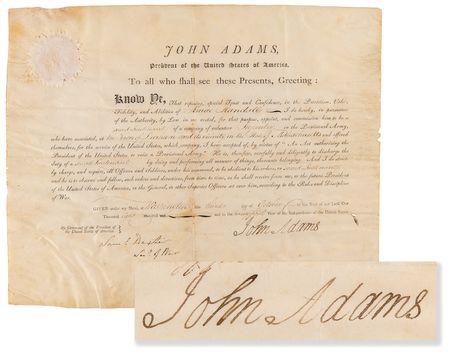 JOHN ADAMS,
President of the United States of America.
To all who shall see these Presents, Greeting:
KNOW YE, That reposing special Trust and Confidence, in the Patriotism, Valor,
Fidelity, and Abilities of I do hereby, in pursuance
of the Authority, by Law in me vested, for that purpose, appoint, and commission him to be a
of a company of volunteer in the Provisional Army,
who have associated, at in the State of Massachusetts and offered
themselves, for the service of the United States, which company, I have accepted of, by virtue of "An Act authorising the
President of the United States to raise a Provisional Army." He is, therefore, carefully and diligently to discharge the
duty of by doing and performing all manner of things, thereunto belonging. And I do strictly
charge, and require, all Officers and Soldiers, under his command, to be obedient to his orders, as
he is to observe and follow, such orders and directions, from time to time, as he shall receive from me, or the future President
of the United States of America, or the General, or other Superior Officers set over him, according to the Rules and Discipline
of War.
GIVEN under my Hand, at the day of October in the Year of our Lord One
Thousand and in the Year of the Independence of the United States.
John Adams
By Command of the President of
the United States of America.
Sam Dexter
Sec of War
John Adams